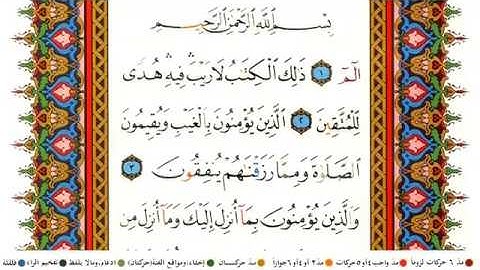 بِسْمِ ٱللَّهِ ٱلرَّحْمَٰنِ ٱلرَّحِيمِ
الٓمٓ ١ ذَٰلِكَ ٱلْكِتَٰبُ لَا رَيْبَ ۛ فِيهِ ۛ هُدًى
لِّلْمُتَّقِينَ ٢ ٱلَّذِينَ يُؤْمِنُونَ بِٱلْغَيْبِ وَيُقِيمُونَ
ٱلصَّلَوٰةَ وَمِمَّا رَزَقْنَٰهُمْ يُنفِقُونَ ٣
وَٱلَّذِينَ يُؤْمِنُونَ بِمَآ أُنزِلَ إِلَيْكَ وَمَآ أُنزِلَ مِن
مد ٦ حركات لزوماً مد واجب ٤ أو ٥ حركات مد ٢ أو ٤ أو ٦ جوازاً مد حركتان إخفاء، ومواقع الغنة (حركتان) ادغام، ومالا يلفظ تفخيم الراء قلقلة